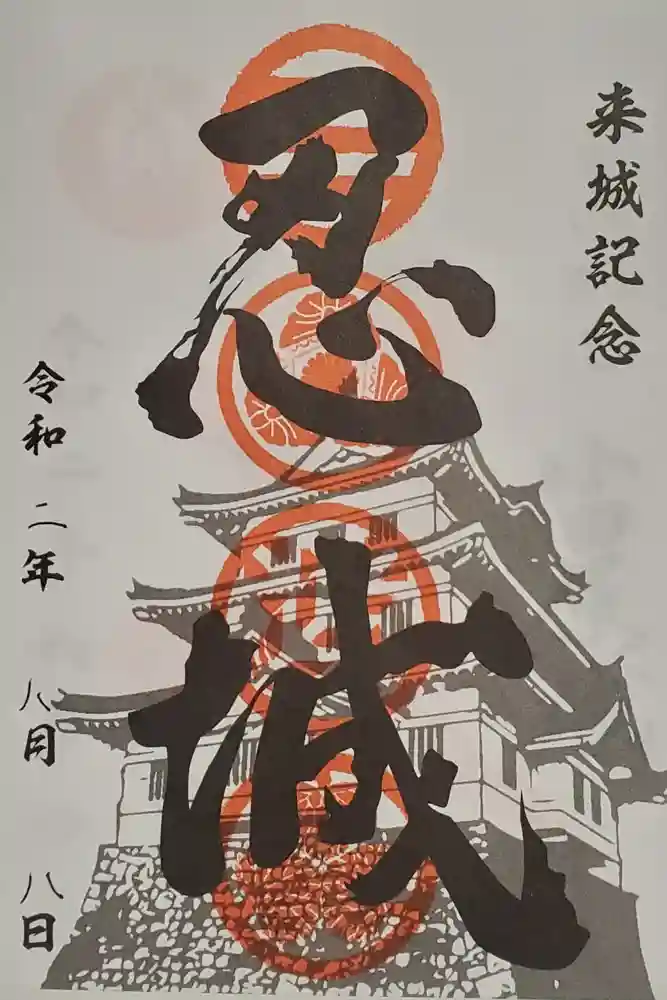 来城記念
忍城
令和二年八月八日